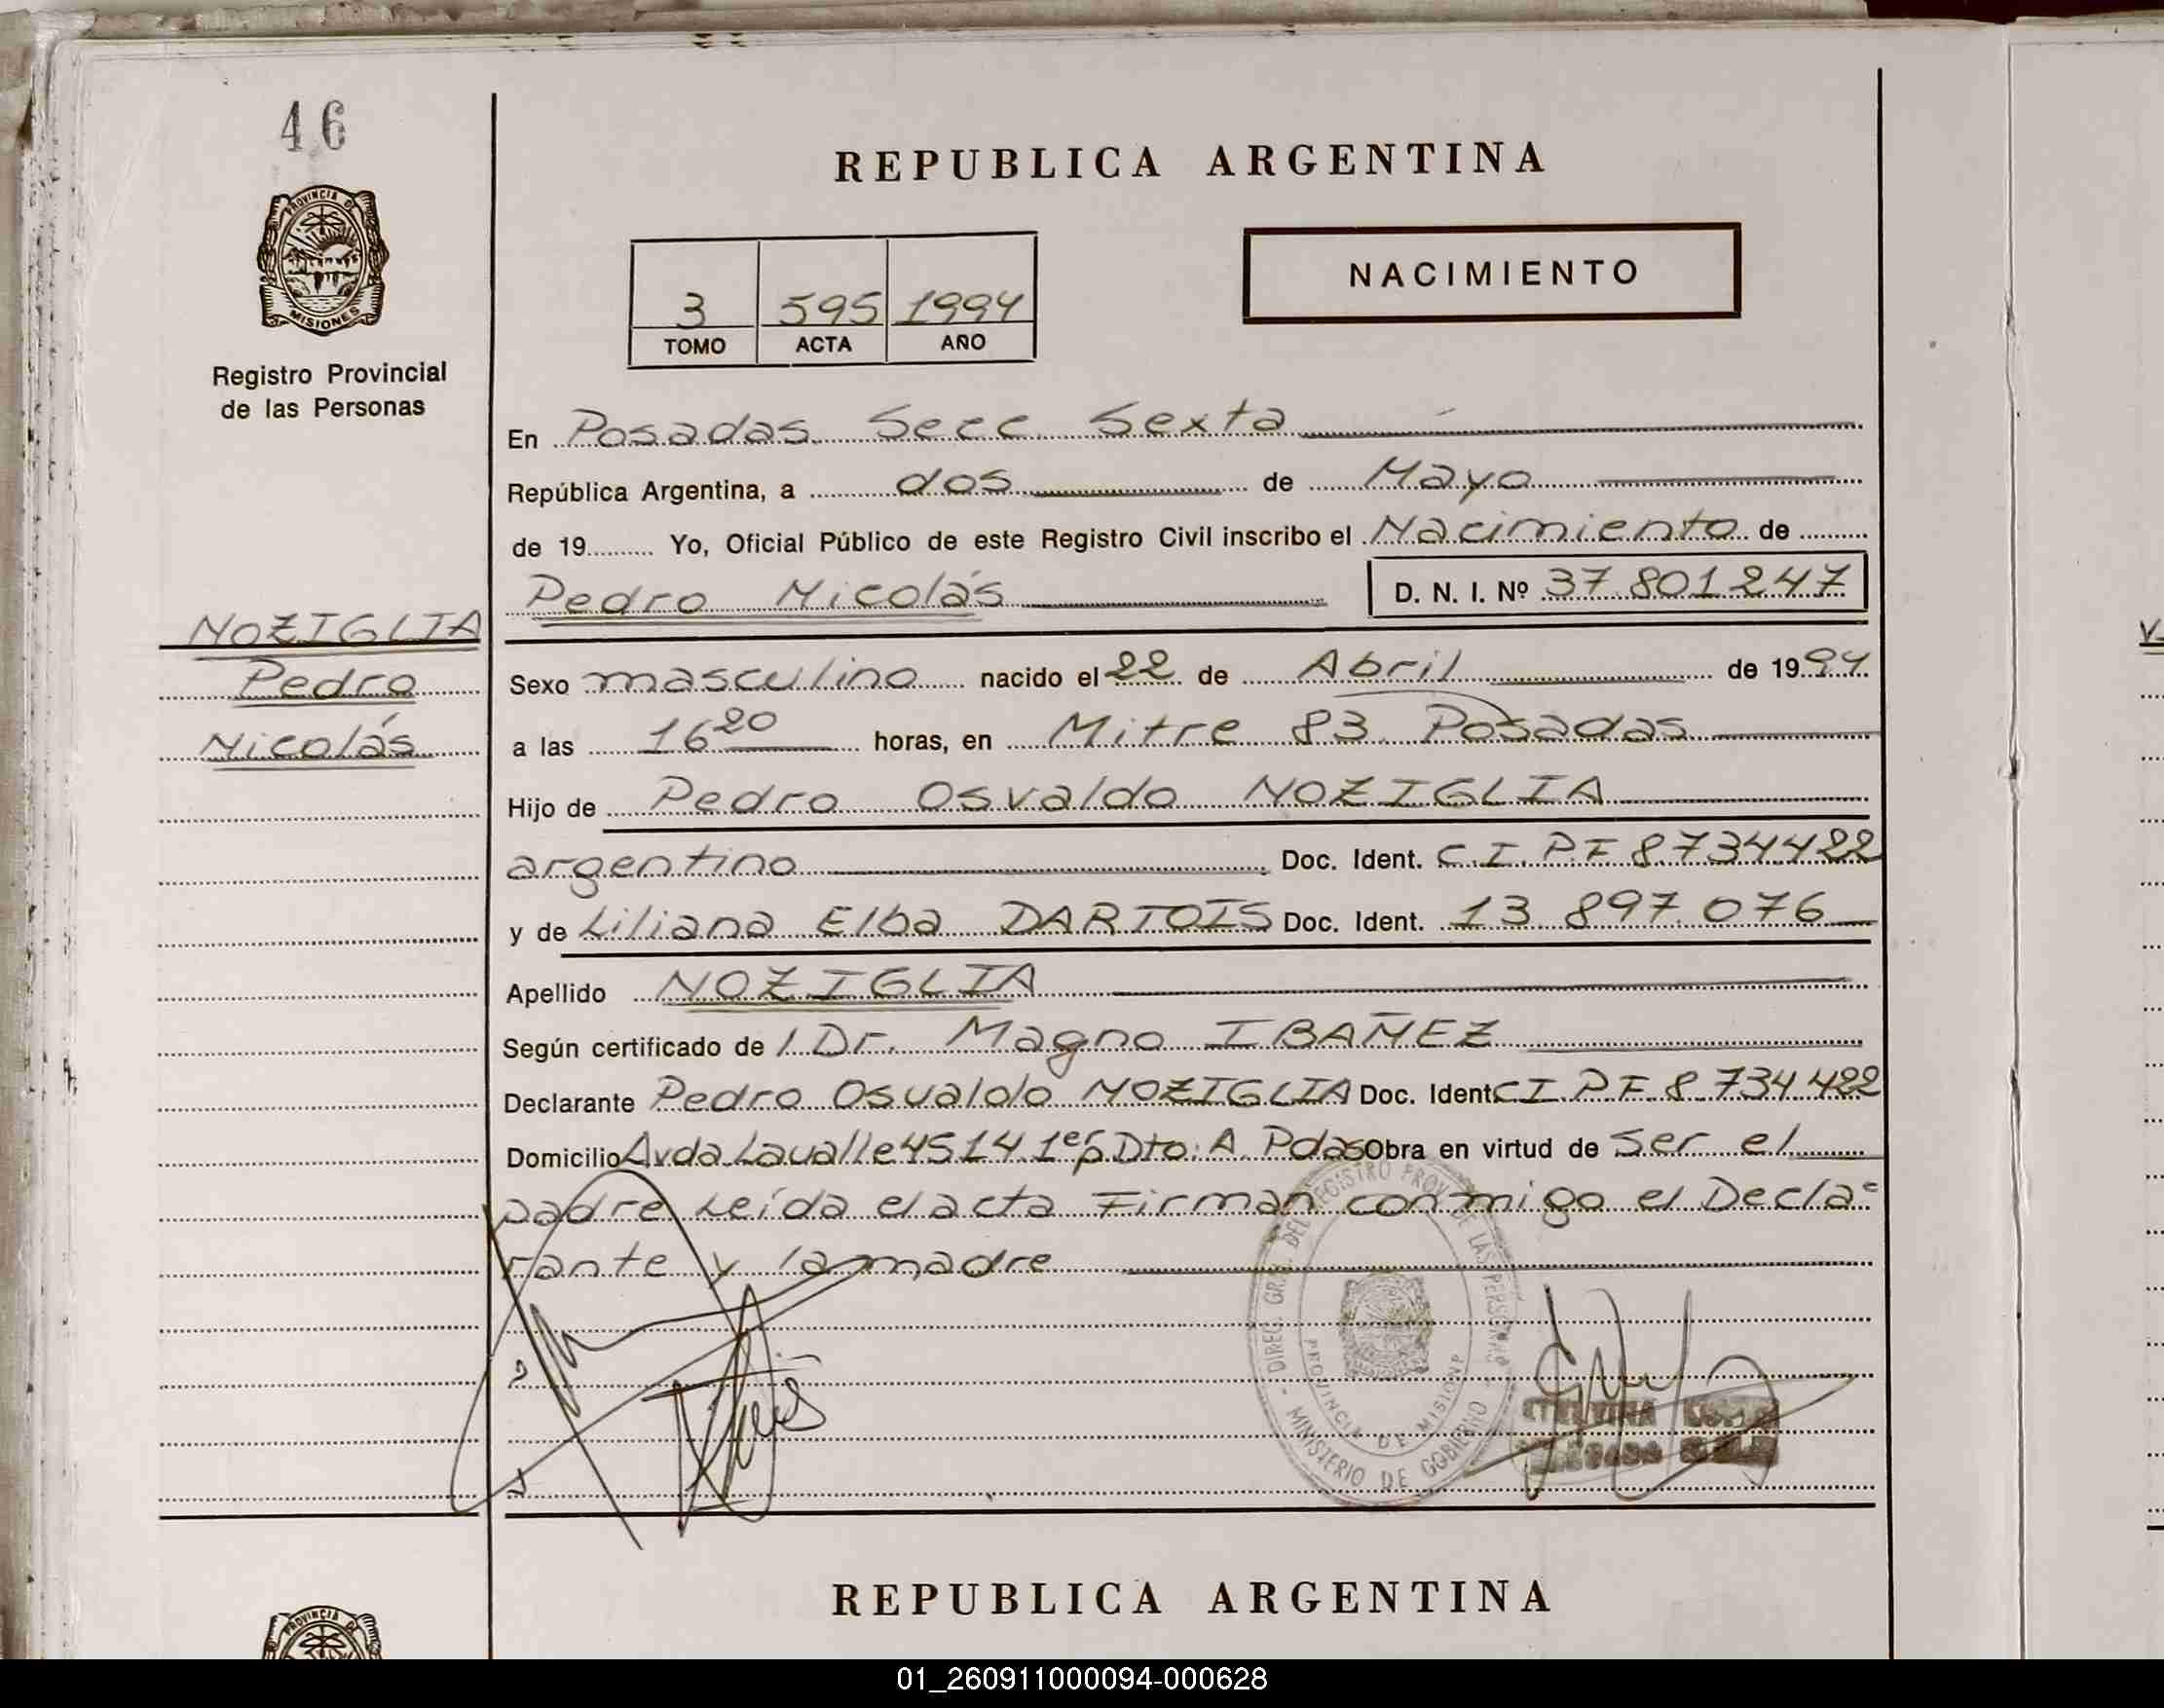 46
PROVINCIA DE
MISIONES
Registro Provincial
de las Personas
NOZIGLIA
Pedro
Nicolás
REPUBLICA ARGENTINA
3 595 1994
TOMO ACTA AÑO
NACIMIENTO
En Posadas Secc Sexta
República Argentina, a dos de Mayo
de 19.......... Yo, Oficial Público de este Registro Civil inscribo el Nacimiento de
Pedro Nicolás D. N. I. Nº 37.801247
Sexo masculino nacido el 22 de Abril de 1994
a las 16 20 horas, en Mitre 83 Posadas
Hijo de Pedro Osvaldo NOZIGLIA
argentino Doc. Ident. C.I.P.F 8.734422
y de Liliana Elba DARTOIS Doc. Ident. 13 897.076
Apellido NOZIGLIA
Según certificado de l Dr. Magno IBAÑEZ
Declarante Pedro Osvaldo NOZIGLIA Doc. Ident C I. P.F. 8.734.422
Domicilio Avda Lavalle 4514 1er p Dto: A. Pdas Obra en virtud de ser el
padre Leída el acta Firman conmigo el Decla=
rante y la madre
DIREC. GRAL. DEL REGISTRO PROV. DE LAS PERSONAS
PROVINCIA DE MISIONES
MINISTERIO DE GOBIERNO
REPUBLICA ARGENTINA
PROVINCIA DE
01_260911000094-000628